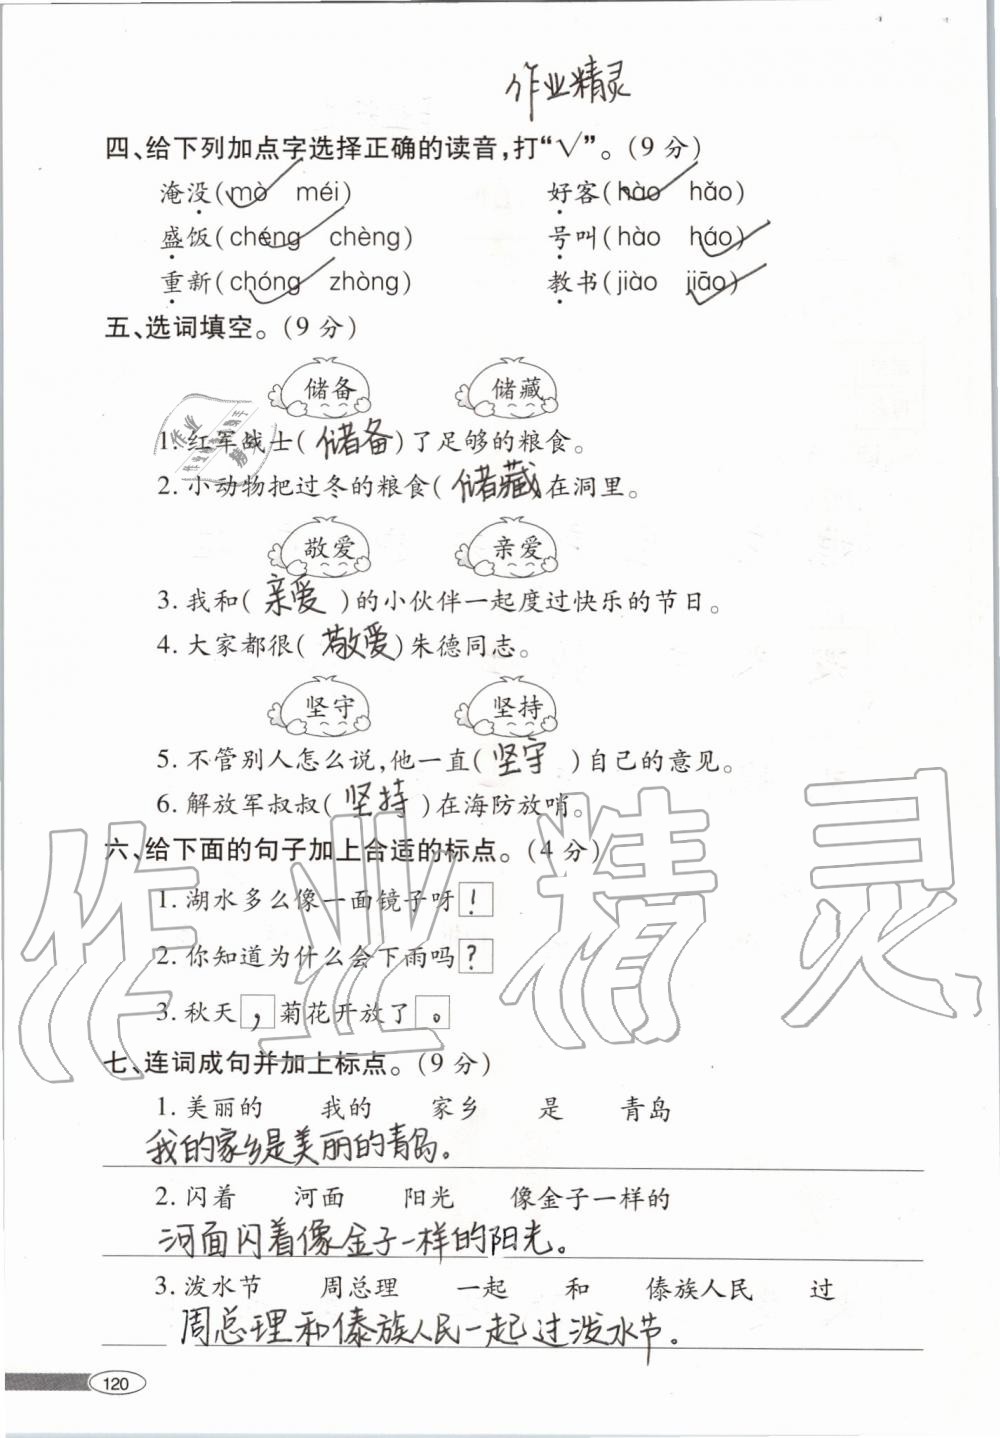 作业精灵
四、给下列加点字选择正确的读音,打“√”。(9分)
淹没(mò méi) 好客(hào hǎo)
盛饭(chéng chèng) 号叫(hào háo)
重新(chóng zhòng) 教书(jiào jiāo)
五、选词填空。(9分)
储备 储藏
1. 红军战士(储备)了足够的粮食。
2. 小动物把过冬的粮食(储藏在洞里。
敬爱 亲爱
3. 我和(亲爱)的小伙伴一起度过快乐的节日。
4. 大家都很(敬爱)朱德同志。
坚守 坚持
5. 不管别人怎么说,他一直(坚守)自己的意见。
6. 解放军叔叔(坚持)在海防放哨。
六、给下面的句子加上合适的标点。(4分)
1. 湖水多么像一面镜子呀!
2. 你知道为什么会下雨吗?
3. 秋天,菊花开放了。
七、连词成句并加上标点。(9分)
1. 美丽的 我的 家乡 是 青岛
我的家乡是美丽的青岛。
2. 闪着 河面 阳光 像金子一样的
河面闪着像金子一样的阳光。
3. 泼水节 周总理 一起 和 傣族人民 过
周总理和傣族人民一起过泼水节。
120
作业精灵